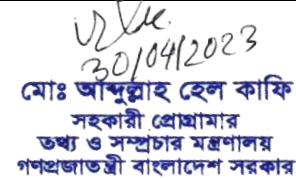 30/04/2023
মোঃ আব্দুল্লাহ হেল কাফি
সহকারী প্রোগ্রামার
তথ্য ও সম্প্রচার মন্ত্রণালয়
গণপ্রজাতন্ত্রী বাংলাদেশ সরকার